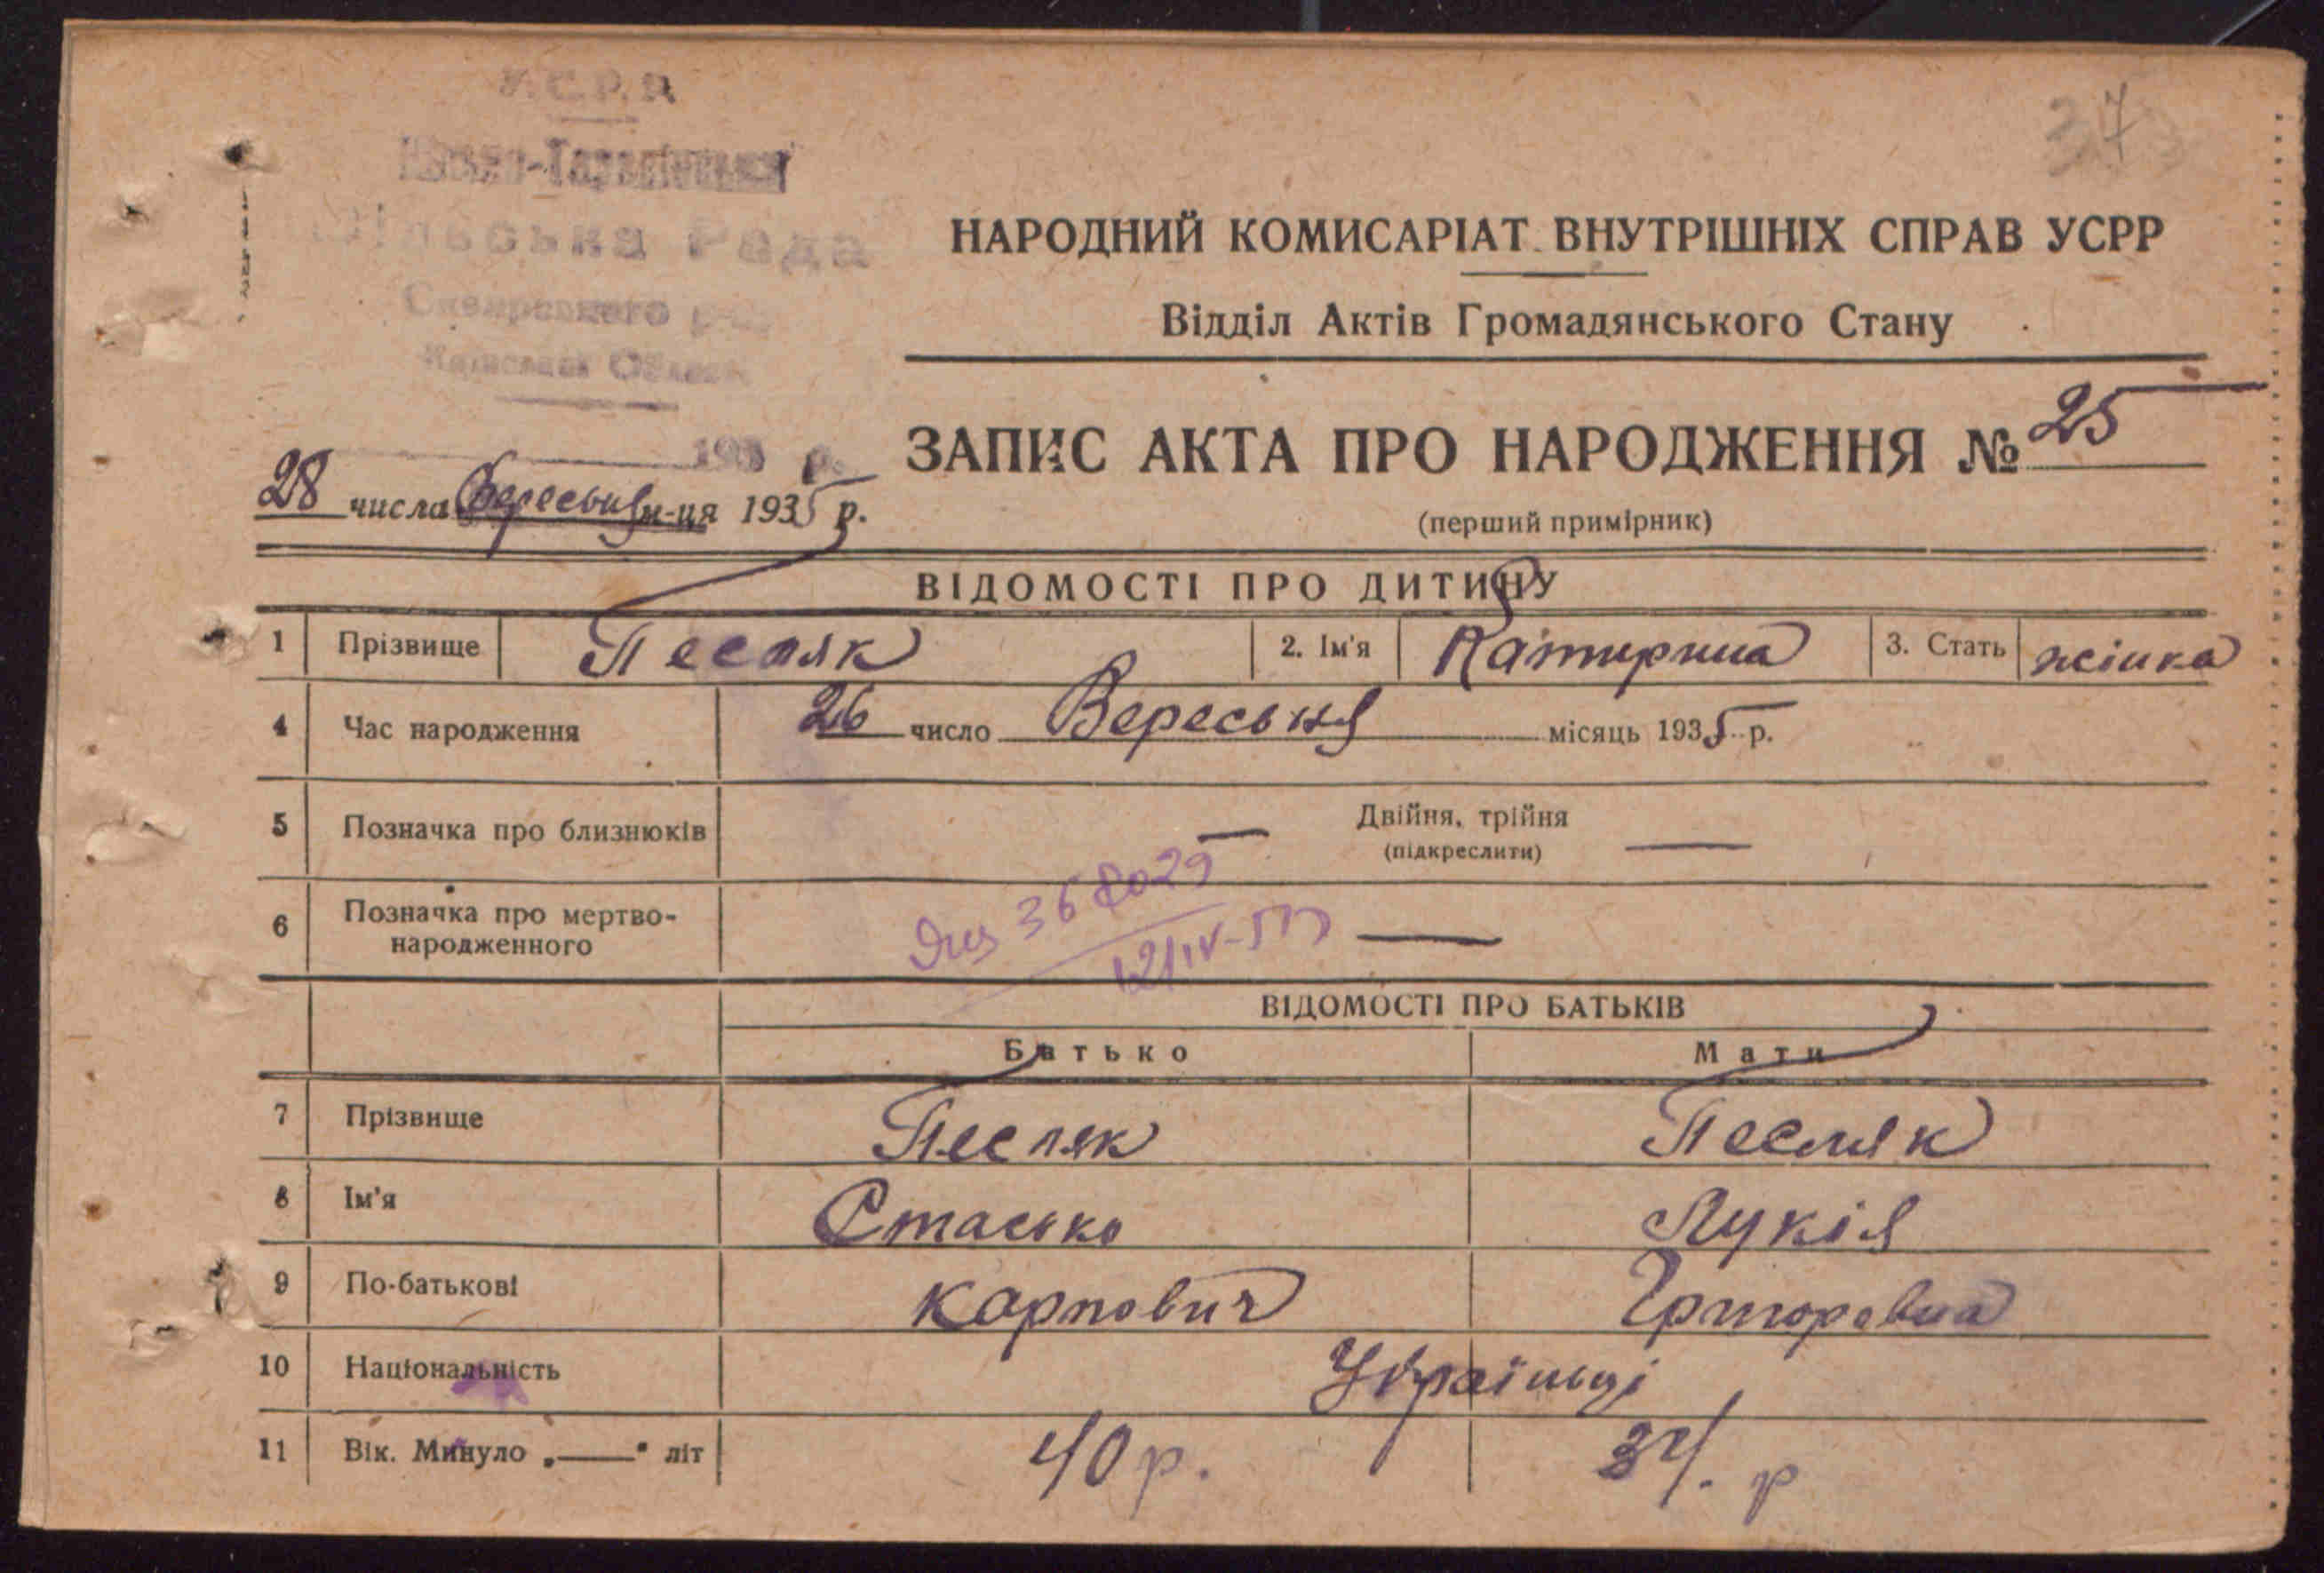 У.С.Р.Р.
Сільська Рада
Сквирського
Київської Області
37
НАРОДНИЙ КОМИСАРІАТ ВНУТРІШНІХ СПРАВ УСРР
Відділ Актів Громадянського Стану
193 р.
28 числа Вересьня м-ця 1935 р.
ЗАПИС АКТА ПРО НАРОДЖЕННЯ № 25
(перший примірник)
ВІДОМОСТІ ПРО ДИТИНУ
1 Прізвище Песляк 2. Ім'я Катирина 3. Стать жінка
4 Час народження 26 число Вересьня місяць 1935 р.
5 Позначка про близнюків — Двійня, трійня —
(підкреслити)
6 Позначка про мертво-
народженного —
368029
ВІДОМОСТІ ПРО БАТЬКІВ
Батько Мати
7 Прізвище Песляк Песляк
8 Ім'я Стасько Лукія
9 По-батькові Карпович
10 Національність Українці
11 Вік. Минуло „——" літ 40 р. 34. р